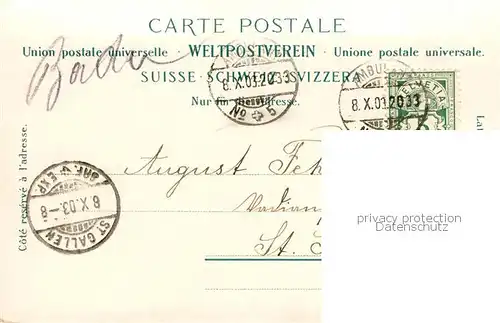 CARTE POSTALE
Union postale universelle · WELTPOSTVEREIN · Unione postale universale.
SUISSE·SCHWEIZ·SVIZZERA
Nur für die Adresse.
Baden
8.X.03.20
No 5
AMBUL
8.X.03.20
HELVETIA
5
Côté reservé à l'adresse.
BRF. EXP.
8.X.03.-8
ST. GALLEN
August Feh
Vadian
St.
privacy protection
Datenschutz